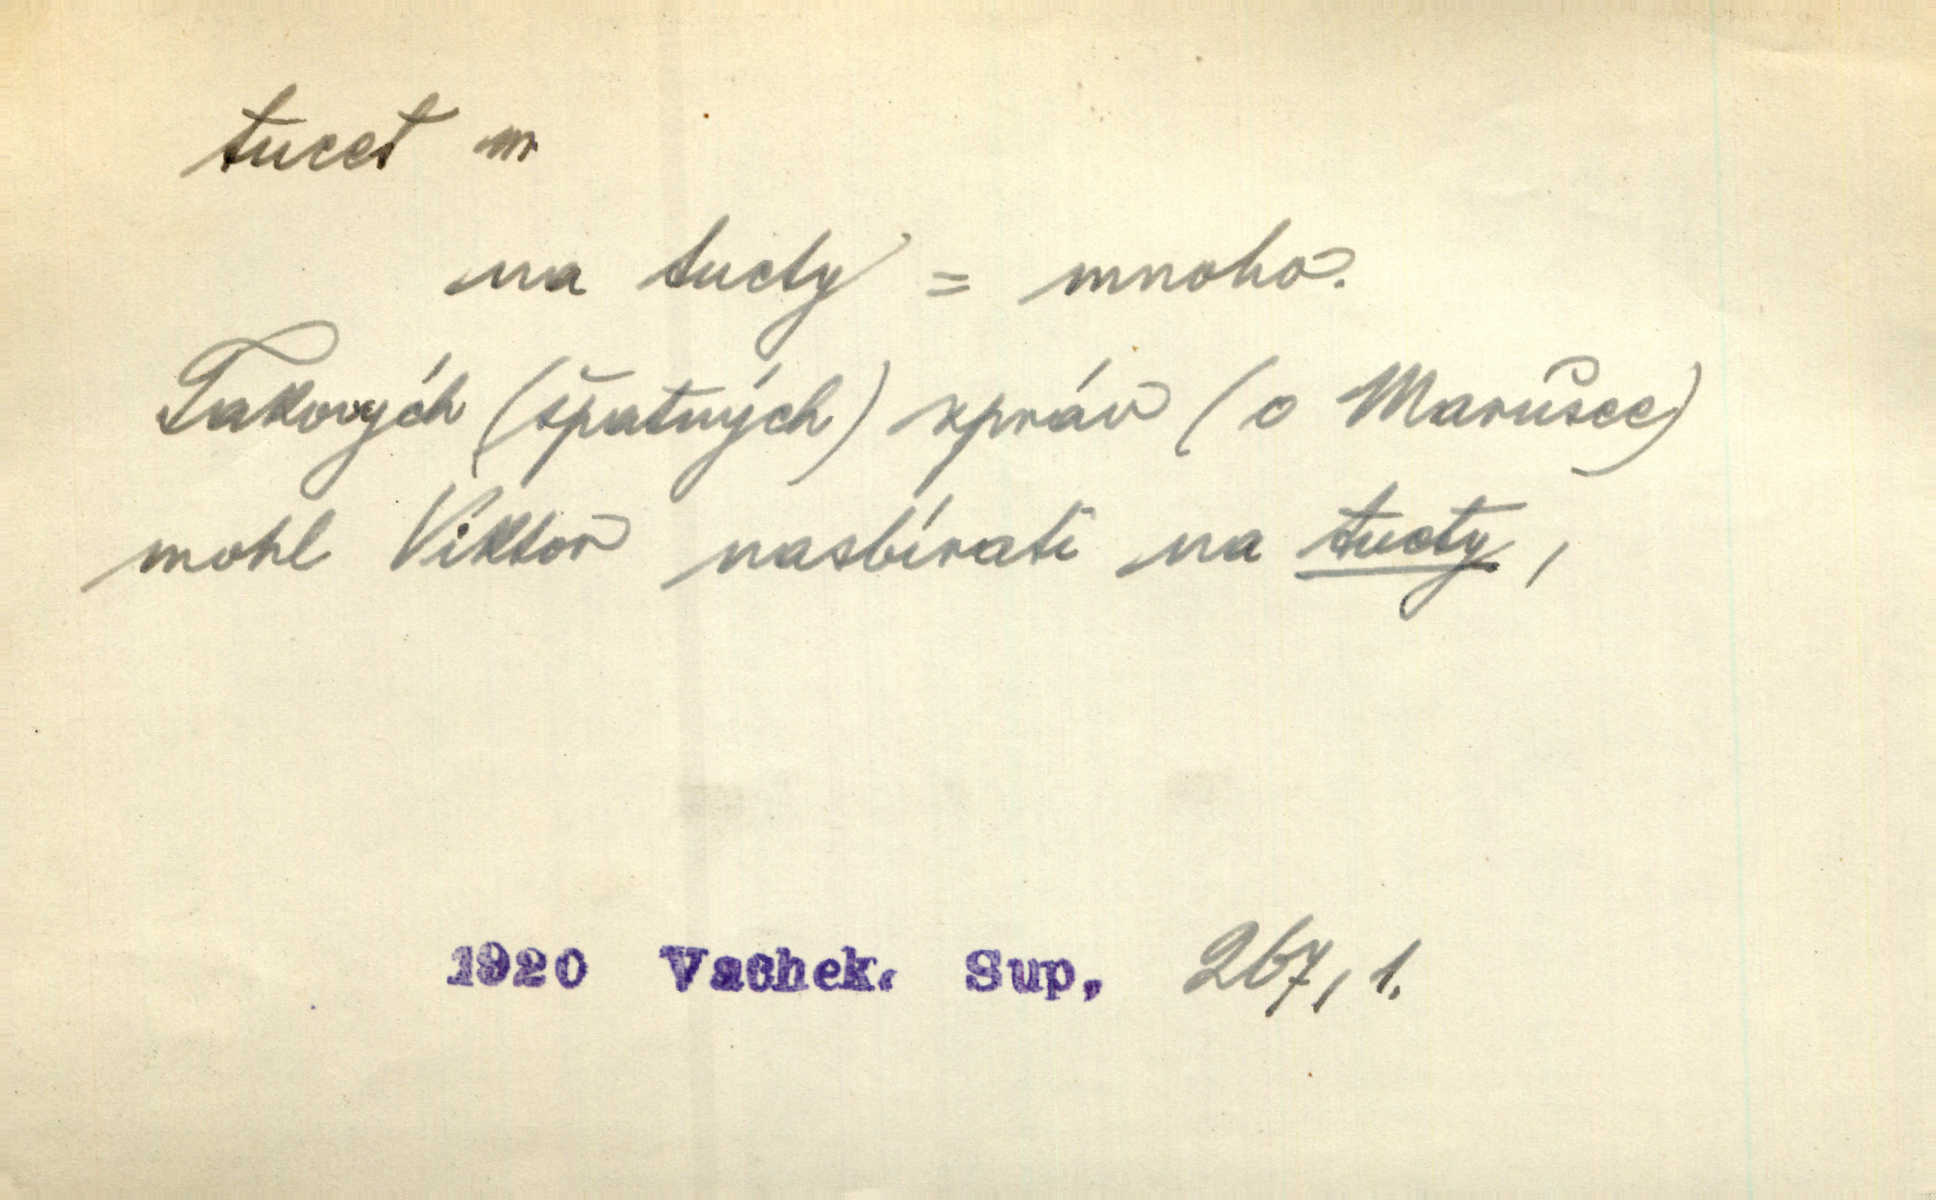 tucet m
na tucty = mnoho.
Takových (špatných) zpráv (o Marušce)
mohl Viktor nasbírati na tucty,
1920 Vachek. Sup, 267, 1.